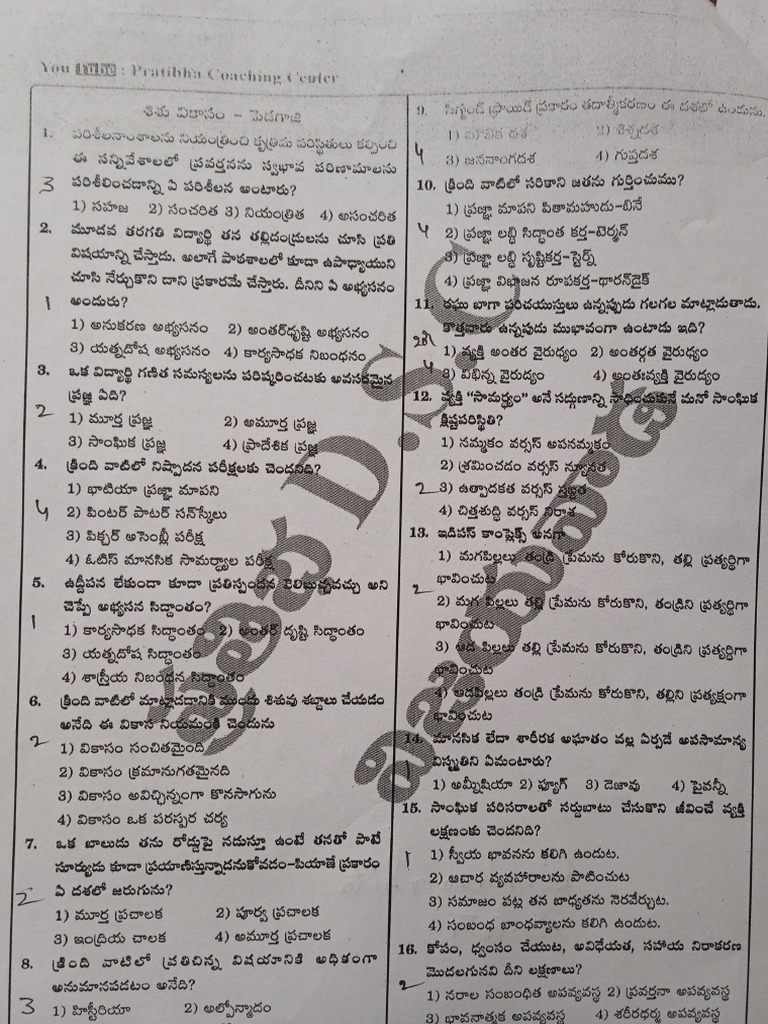 You Tube : Pratibha Coaching Center
శిశు వికాసం - పెడగాజి
1. పరిశీలనాంశాలను నియంత్రించి కృత్రిమ పరిస్థితులు కల్పించి
ఈ సన్నివేశాలలో ప్రవర్తనను స్వభావ పరిణామాలను
పరిశీలించడాన్ని ఏ పరిశీలన అంటారు?
3
1) సహజ 2) సంచరిత 3) నియంత్రిత 4) అసంచరిత
2. మూడవ తరగతి విద్యార్థి తన తల్లిదండ్రులను చూసి ప్రతి
విషయాన్ని చేస్తాడు. అలాగే పాఠశాలలో కూడా ఉపాధ్యాయుని
చూసి నేర్చుకొని దాని ప్రకారమే చేస్తారు. దీనిని ఏ అభ్యసనం
అందురు?
1
1) అనుకరణ అభ్యసనం 2) అంతర్‌దృష్టి అభ్యసనం
3) యత్నదోష అభ్యసనం 4) కార్యసాధక నిబంధనం
3. ఒక విద్యార్థి గణిత సమస్యలను పరిష్కరించుటకు అవసరమైన
ప్రజ్ఞ ఏది?
2
1) మూర్త ప్రజ్ఞ 2) అమూర్త ప్రజ్ఞ
3) సాంఘిక ప్రజ్ఞ 4) ప్రాదేశిక ప్రజ్ఞ
4. క్రింది వాటిలో నిష్పాదన పరీక్షలకు చెందనిది?
1) భాటియా ప్రజ్ఞా మాపని
4
2) పింటర్ పాటర్ సన్‌స్కేలు
3) పిక్చర్ అసెంబ్లీ పరీక్ష
4) ఓటిస్ మానసిక సామర్థ్యాల పరీక్ష
5. ఉద్దీపన లేకుండా కూడా ప్రతిస్పందన వెలిబుచ్చవచ్చు అని
చెప్పే అభ్యసన సిద్దాంతం?
1
1) కార్యసాధక సిద్ధాంతం 2) అంతర్ దృష్టి సిద్ధాంతం
3) యత్నదోష సిద్ధాంతం
4) శాస్త్రీయ నిబంధన సిద్ధాంతం
6. క్రింది వాటిలో మాట్లాడడానికి ముందు శిశువు శబ్దాలు చేయడం
అనేది ఈ వికాస నియమంకి చెందును
2
1) వికాసం సంచితమైంది
2) వికాసం క్రమానుగతమైనది
3) వికాసం అవిచ్ఛిన్నంగా కొనసాగును
4) వికాసం ఒక పరస్పర చర్య
7. ఒక బాలుడు తను రోడ్డుపై నడుస్తూ ఉంటే తనతో పాటే
సూర్యుడు కూడా ప్రయాణిస్తున్నాడనుకోవడం-పియాజే ప్రకారం
ఏ దశలో జరుగును?
2
1) మూర్త ప్రచాలక 2) పూర్వ ప్రచాలక
3) ఇంద్రియ చాలక 4) అమూర్త ప్రచాలక
8. క్రింది వాటిలో ప్రతిచిన్న విషయానికి అధికంగా
అనుమానపడటం అనేది?
3
1) హిస్టీరియా 2) అల్పోన్మాదం
9. సిగ్మండ్ ఫ్రాయిడ్ ప్రకారం తదాత్మీకరణం ఈ దశలో ఉండును.
1) మౌఖిక దశ 2) శిశ్నదశ
4
3) జననాంగదశ 4) గుప్తదశ
10. క్రింది వాటిలో సరికాని జతను గుర్తించుము?
1) ప్రజ్ఞా మాపని పితామహుడు-బినే
4
2) ప్రజ్ఞా లబ్ధి సిద్ధాంత కర్త-టెర్మన్
3) ప్రజ్ఞా లబ్ధి సృష్టికర్త-స్టెర్న్
4) ప్రజ్ఞా విభాజన రూపకర్త-థారన్‌డైక్
11. రఘు బాగా పరిచయస్తులు ఉన్నప్పుడు గలగల మాట్లాడుతాడు.
కొత్తవారు ఉన్నపుడు ముభావంగా ఉంటాడు ఇది?
1) వ్యక్తి అంతర వైరుధ్యం 2) అంతర్గత వైరుధ్యం
4
3) విభిన్న వైరుద్యం 4) అంతఃవ్యక్తి వైరుద్యం
12. వ్యక్తి "సామర్థ్యం" అనే సద్గుణాన్ని సాధించుకునే మనో సాంఘిక
క్లిష్టపరిస్థితి?
1) నమ్మకం వర్సస్ అపనమ్మకం
2) శ్రమించడం వర్సస్ న్యూనత
2
3) ఉత్పాదకత వర్సస్ స్తబ్ధత
4) చిత్తశుద్ధి వర్సస్ నిరాశ
13. ఇడిపస్ కాంప్లెక్స్ అనగా
1) మగపిల్లలు తండ్రి ప్రేమను కోరుకొని, తల్లి ప్రత్యర్థిగా
భావించుట
2
2) మగ పిల్లలు తల్లి ప్రేమను కోరుకొని, తండ్రిని ప్రత్యర్థిగా
భావించుట
3) ఆడ పిల్లలు తల్లి ప్రేమను కోరుకొని, తండ్రిని ప్రత్యర్థిగా
భావించుట
4) ఆడపిల్లలు తండ్రి ప్రేమను కోరుకొని, తల్లిని ప్రత్యక్షంగా
భావించుట
14. మానసిక లేదా శారీరక అఘాతం వల్ల ఏర్పడే అపసామాన్య
విస్మృతిని ఏమంటారు?
1
1) అమ్నీషియా 2) ఫ్యూగ్ 3) డెజావు 4) పైవన్నీ
15. సాంఘిక పరిసరాలతో సర్దుబాటు చేసుకొని జీవించే వ్యక్తి
లక్షణంకు చెందనిది?
1
1) స్వీయ భావనను కలిగి ఉండుట.
2) ఆచార వ్యవహారాలను పాటించుట
3) సమాజం పట్ల తన బాధ్యతను నెరవేర్చుట.
4) సంబంధ బాంధవ్యాలను కలిగి ఉండుట.
16. కోపం, ధ్వంసం చేయుట, అవిధేయత, సహాయ నిరాకరణ
మొదలగునవి దీని లక్షణాలు?
2
1) నరాల సంబంధిత అపవ్యవస్థ 2) ప్రవర్తనా అపవ్యవస్థ
3) భావనాత్మక అపవ్యవస్థ 4) శరీరధర్మ అపవ్యవస్థ
ప్రతిభ D.S.C
విజయవాడ